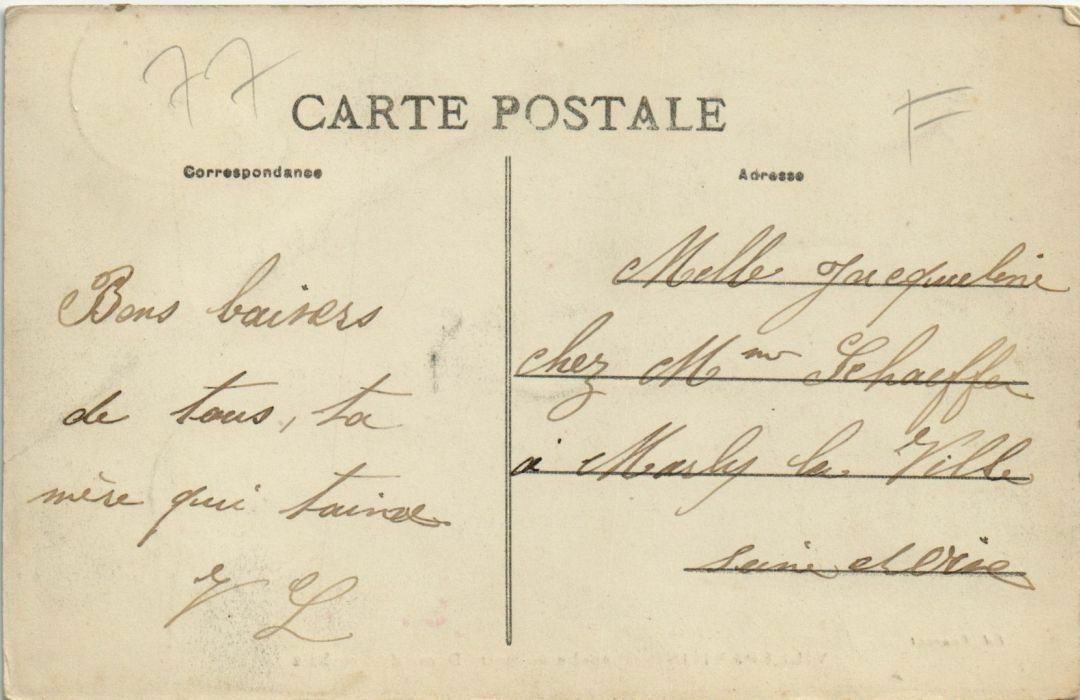 77
F
CARTE POSTALE
Correspondance
Bons baisers
de tous, ta
mère qui t'aime
V L
Adresse
Melle Jacqueline
chez Mme Schaeffer
à Marly la Ville
Seine et Oise